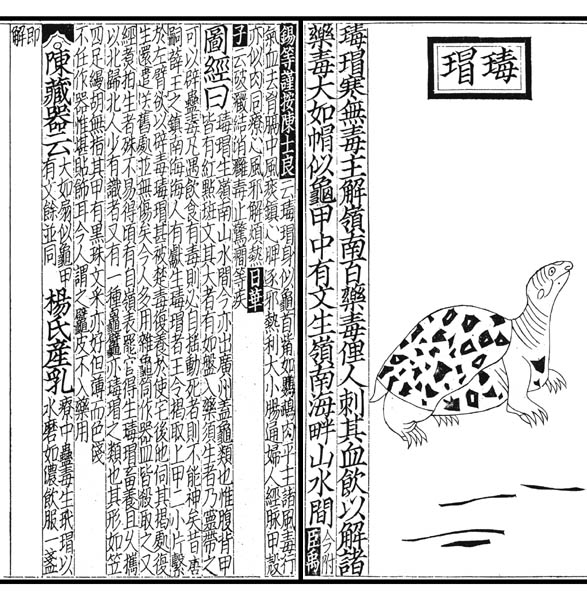 瑇瑁
瑇瑁寒無毒主解嶺南百藥毒俚人刺其血飲以解諸
藥毒大如帽似龜甲中有文生嶺南海畔山水間今附臣禹
錫等謹按陳士良云瑇瑁身似龜首觜如鸚鵡肉平主諸風毒行
氣血去胷膈中風痰鎮心脾逐邪熱利大小腸通婦人經脉甲殼
亦似肉同療心風邪解煩熱日華
子云破癥結消癰毒止驚癎等疾
圖經曰瑇瑁生嶺南山水間今亦出廣州蓋龜類也惟腹背甲
皆有紅點斑文其大者有如盤入藥須生者乃靈帶之
可以辟蠱毒凡遇飲食有毒則必自搖動死者則不能神矣昔唐
嗣薛王之鎮南海海人有獻生瑇瑁者王令揭取上甲二小片繫
於左臂欲以辟毒瑇瑁甚被楚毒復養於使宅後池伺其揭處復
生還遣送舊處並無傷矣今人多用雜龜筒作器皿皆殺取之又
經煮拍生者殊不易得頃有自嶺表罷官得生瑇瑁畜養且久攜
以北歸北人多有識者又有一種龜鼊亦瑇瑁之類也其形如笠
四足縵胡無指其甲有黑珠文采亦好但薄而色淺
不任作器惟堪貼飾耳今人謂之鼊皮不入藥用
陳藏器云大如扇似龜甲有文餘並同楊氏産乳療中蠱毒生瑇瑁以水磨如濃飲服一盞
即解